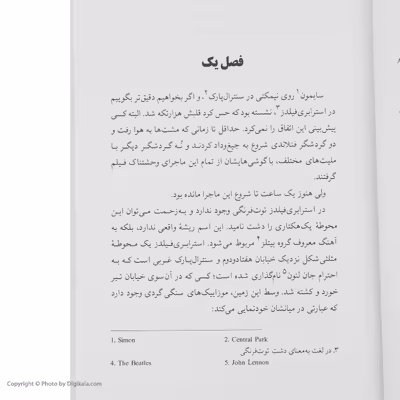 فصل یک
سایمون۱ روی نیمکتی در سنترال‌پارک۲، و اگر بخواهیم دقیق‌تر بگوییم
در استرابری‌فیلدز۳، نشسته بود که حس کرد قلبش هزارتکه شد. البته کسی
پیش‌بینی این اتفاق را نمی‌کرد. حداقل تا زمانی که مشت‌ها به هوا رفت و
دو گردشگر فنلاندی شروع به جیغ‌وداد کردند و نُه گردشگر دیگر با
ملیت‌های مختلف، با گوشی‌هایشان از تمام این ماجرای وحشتناک فیلم
گرفتند.
ولی هنوز یک ساعت تا شروع این ماجرا مانده بود.
در استرابری‌فیلدز توت‌فرنگی وجود ندارد و به‌زحمت می‌توان این
محوطهٔ یک‌هکتاری را دشت نامید. این اسم ریشهٔ واقعی ندارد، بلکه به
آهنگ معروف گروه بیتلز۴ مربوط می‌شود. استرابری‌فیلدز یک محوطهٔ
مثلثی‌شکل نزدیک خیابان هفتادودوم و سنترال‌پارک غربی است که به
احترام جان لنون۵ نام‌گذاری شده است؛ کسی که در آن‌سوی خیابان تیر
خورد و کشته شد. وسط این زمین، موزاییک‌های سنگی گردی وجود دارد
که عبارتی در میانشان خودنمایی می‌کند:
1. Simon 2. Central Park
۳. در لغت به‌معنای دشت توت‌فرنگی
4. The Beatles 5. John Lennon
Copyright © Photo by Digikala.com